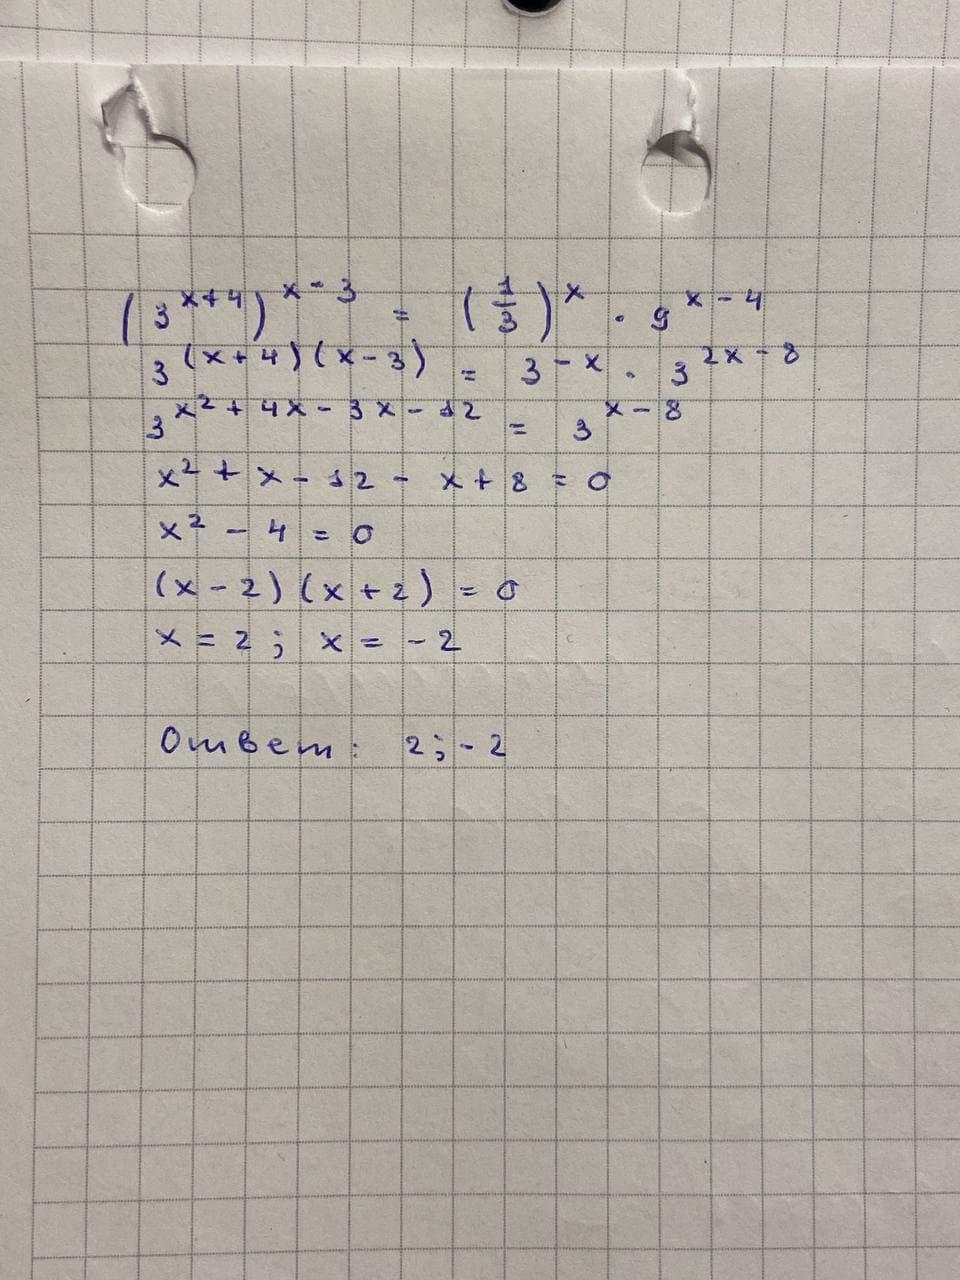 (3^{x+4})^{x-3} = (1/3)^x · 9^{x-4}
3^{(x+4)(x-3)} = 3^{-x} · 3^{2x-8}
3^{x²+4x-3x-12} = 3^{x-8}
x² + x - 12 - x + 8 = 0
x² - 4 = 0
(x-2)(x+2) = 0
x = 2; x = -2
Ответ: 2; -2